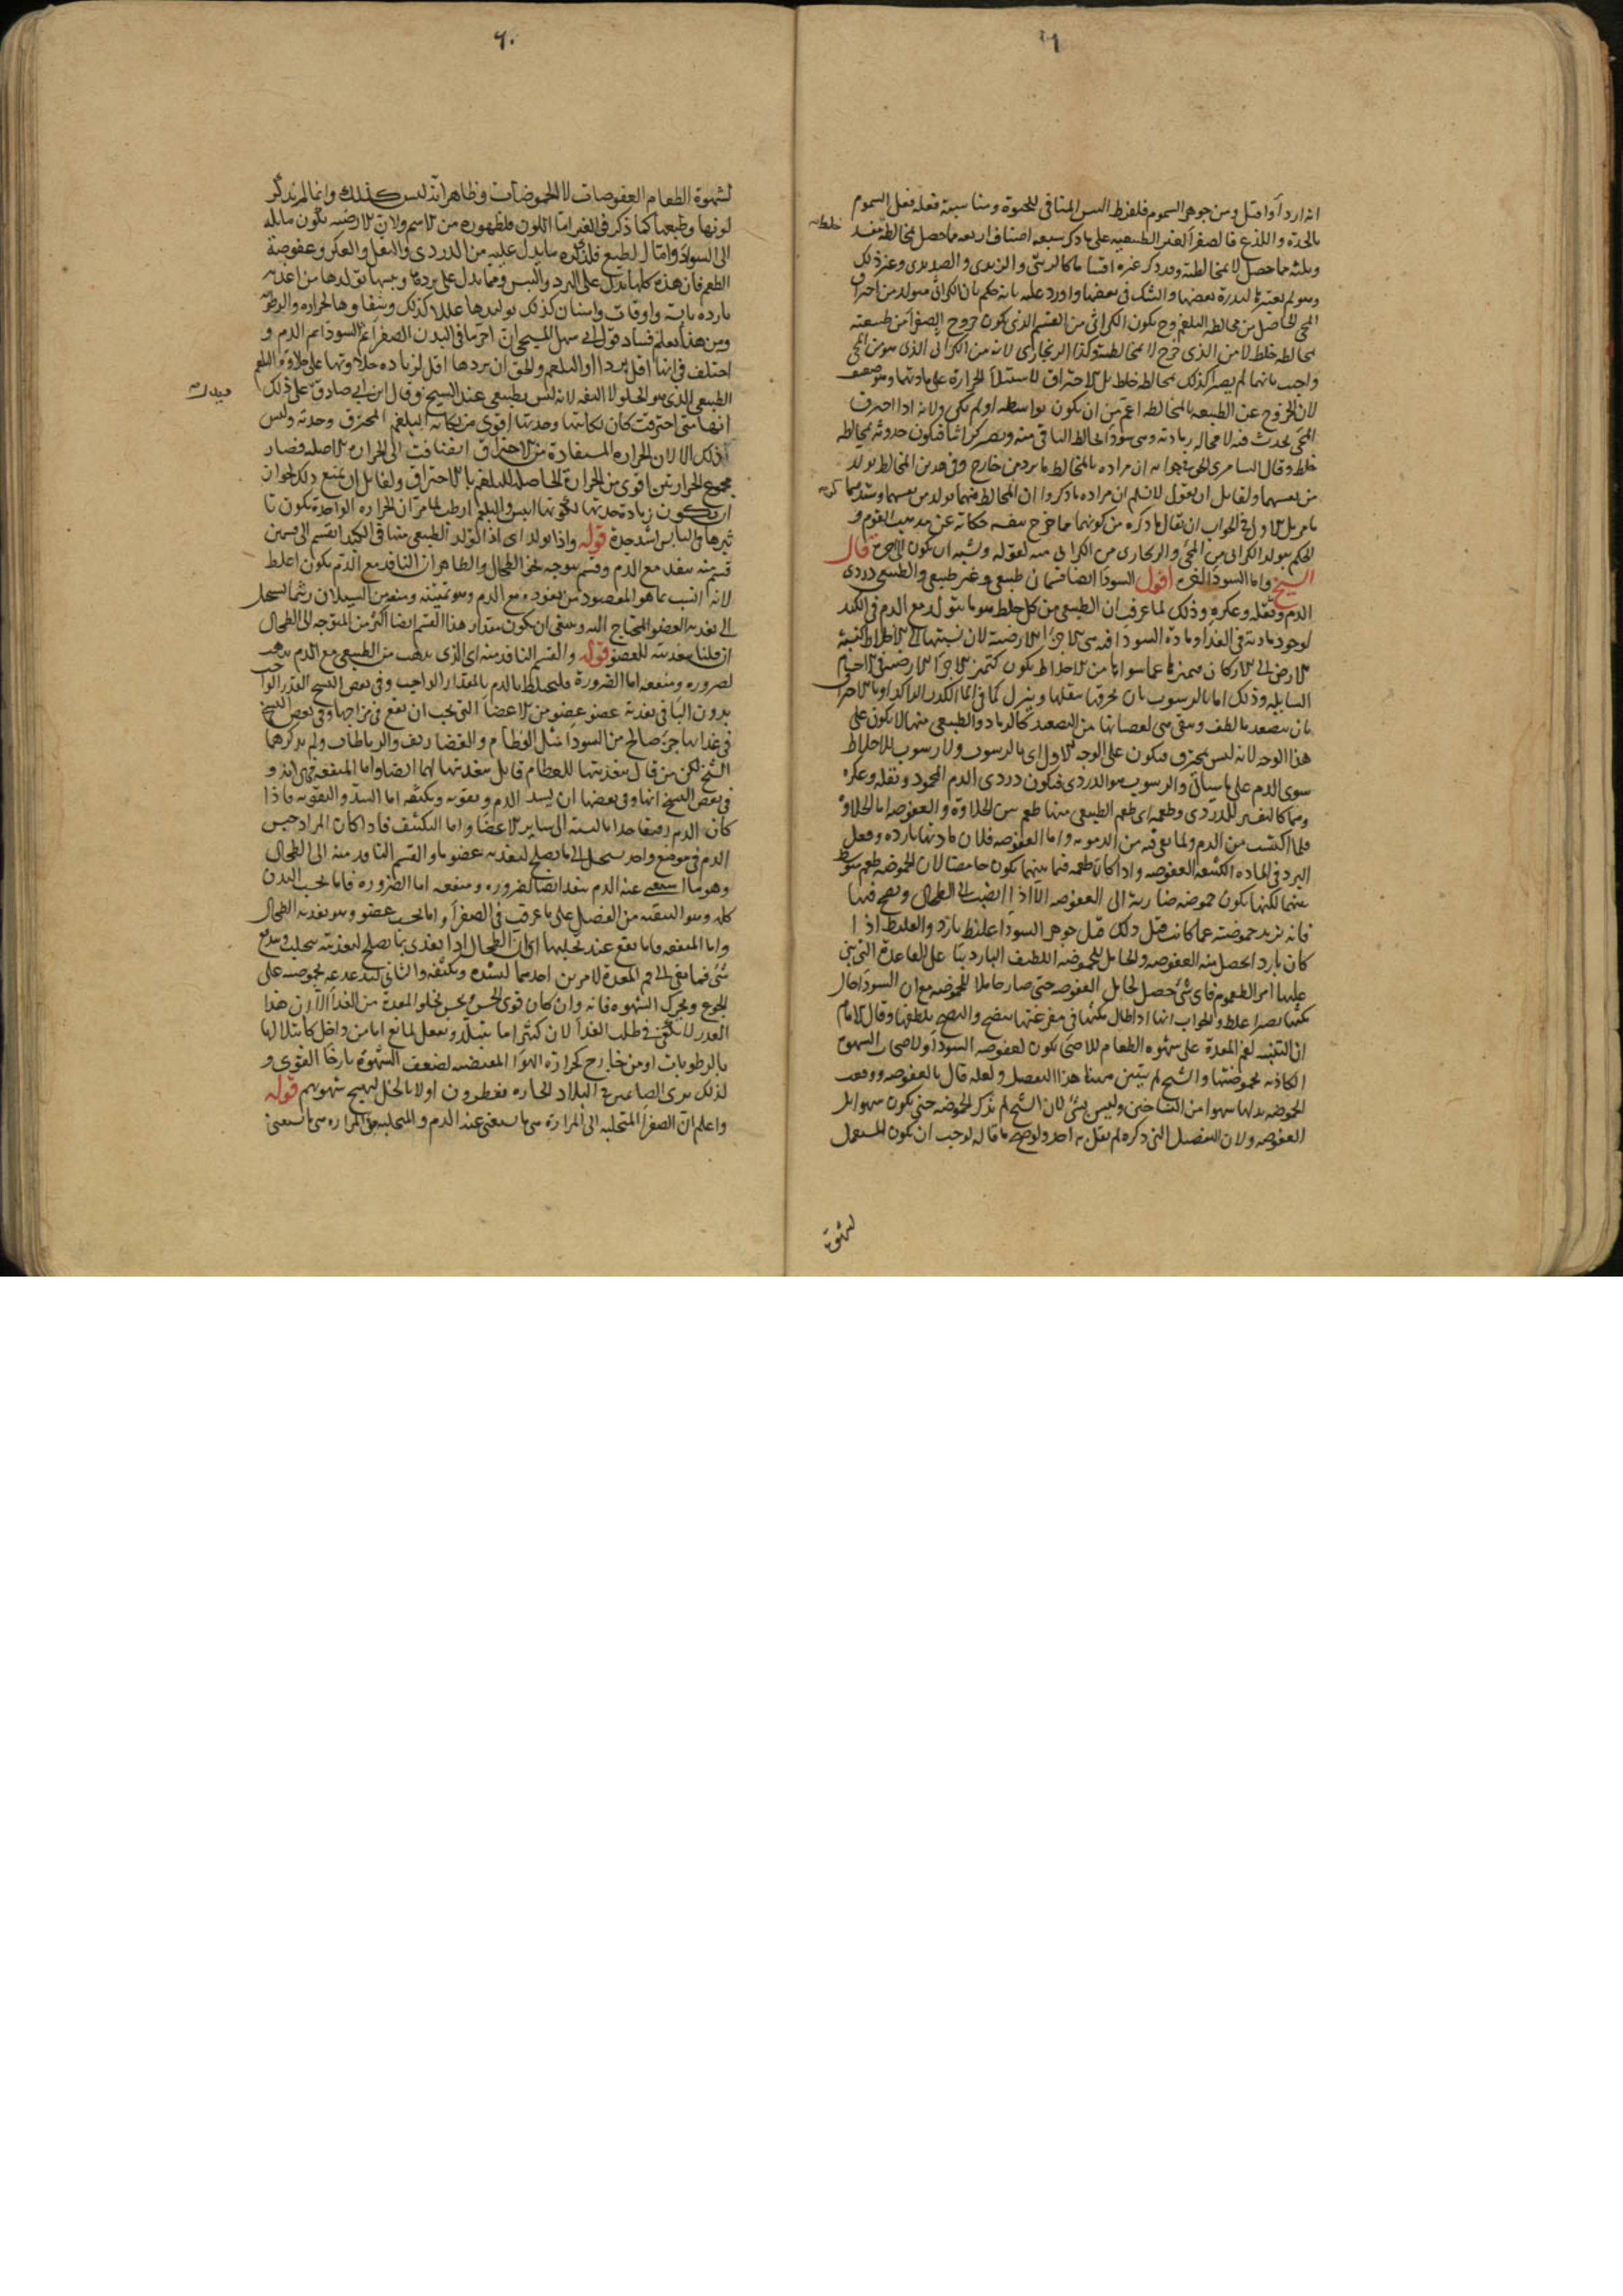 انه اردأ واقتل ومن جوهر السموم فلفرط اليبس المنافى للحيوة ومناسبة فعله فعل السموم
بالحدة واللذع فالصفرا الغير الطبيعيه على ما ذكر سبعه اصناف اربعه ما حصل بمخالطة
وثلثه ما حصل لا بمخالطة وقد ذكر غيره اقساما كالزيتى والزبدى والصديدى وغير ذلك
المحى الحاصل من مخالطه البلغم وح يكون الكراثى من القسم الذى يكون خروج الصفرا من طبيعته
بمخالطه خلط لا من الذى خرج لا بمخالطة وكذا الزنجارى لانه من الكراثى الذى هو من المحى
واجيب بانهما لم يصيرا كذلك بمخالطه خلط بل الاحتراق لاستيلأ الحرارة على مادتهما وهو ضعيف
لان الخروج عن الطبيعه بالمخالطه اعم من ان يكون بواسطه او لم يكن ولانه اذا احترق
المحى يحدث فيه لا محاله رماديه وهى سودا تخالط الباقى منه ويصير كراثيا فيكون حدوثه بمخالطه
خلط وقال السامرى فى جوابه ان مراده بالمخالط ما يرد من خارج وفى هذين المخالط تولد
من نفسهما ولقايل ان يقول لا نسلم ان مراده ما ذكروا ان المخالط فيهما تولد من نفسهما
بل الاولى فى الجواب ان يقال ما ذكره من كونهما مما خرج بنفسه حكاية عن مذهب القوم و
الحكم بتولد الكراثى من المحى والزنجارى من الكراثى منه لقوله ويشبه ان يكون الى اخره قال
الشيخ واما السودا الى اخره اقول السودا ايضا قسمان طبيعى وغير طبيعى والطبيعى دردى
الدم وثقله وعكره وذلك لما عرفت ان الطبيعى من كل خلط هو ما يتولد مع الدم فى الكبد
لوجود مادته فى الغذأ ومادة السودا فيه هى الاجزا الارضية لان نسبتها الى الاخلاط كنسبة
الارض الى الاركان فتميزها عما سواها من الاخلاط يكون كتميز الاجزا الارضية فى الاجسام
السايله وذلك اما بالرسوب بان تخرقها بثقلها وينزل كما فى الما الكدر الراكد او بالاحتراق
بان يتصعد ما لطف ويبقى من التصعيد كالرماد والطبيعى منها لا يكون على
هذا الوجه لانه ليس بمحترق فيكون على الوجه الاول اى بالرسوب ولا رسوب للاخلاط
سوى الدم على ما سياتى والرسوب هو الدردى فيكون دردى الدم المحمود وثقله وعكره
وهما كالتفسير للدردى وطعمه اى طعم الطبيعى منها طعم بين الحلاوة والعفوصه اما الحلاوة
فلما اكتسب من الدم ولما بقى فيه من الدمويه واما العفوصه فلان مادتها بارده وفعل
البرد فى الماده الكثيفه العفوصه واذا كان طعمه فيما بينهما يكون حامضا لان الحموضه طعم متوسط
بينهما لكنها يكون حموضه ضاربة الى العفوصه الا اذا انصبت الى الطحال ونضج فيها
فانه يزيد حموضته عما كانت قبل ذلك قيل جوهر السودا غليظ بارد والغليظ اذا
كان باردا يحصل منه العفوصه والحامل للحموضه اللطيف البارد بنأ على القاعدة التى بنى
عليها امر الطعوم فاى شئ حصل لحامل العفوصه حتى صار حاملا للحموضه مع ان السودا حال
مكثها يصير اغلظ والجواب انها اذا طال مكثها فى مفرغتها ينضج والنضج يلطفها وقال الامام
ان التنبيه لفم المعدة على شهوه الطعام للاصحا يكون لعفوصه السودا ولاصحاب الشهوه
الكاذبه بحموضتها والشيخ لم يبين هنا هذا التفصيل ولعله قال بالعفوصه ووقعت
الحموضه بدلها سهوا من الناسخين وليس بشئ لان الشيخ لم يذكر الحموضه حتى يكون سهوا بل
العفوصه ولان التفصيل الذى ذكره لم يقل به احد ولو صح ما قاله لوجب ان يكون المستعمل
لشهوة
لشهوة الطعام العفوصات لا الحموضات وظاهر انه ليس كذلك وانما لم يذكر
لونها وطبعها كما ذكر فى الغير اما اللون فلظهوره من الاسم ولان الارضيه يكون مايله
الى السواد واما الطبع فلذكره ما يدل عليه من الدردى والثقل والعكر وعفوصة
الطعم فان هذه كلها تدل على البرد واليبس ومما يدل على بردها ويبسها تولدها من اغذيه
بارده يابسه واوقات واسنان كذلك توليدها عللا كذلك وشفاوها الحراره والرطوبه
ومن هذا يعلم فساد قول ابى سهل المسيحى ان احر ما فى البدن الصفرا ثم السودا ثم الدم و
اختلف فى انها اقل بردا او البلغم والحق ان بردها اقل لزياده حلاوتها على حلاوة البلغم
الطبيعى الذى هو الحلو لا التفه لانه ليس بطبيعى عند الشيخ وقال ابن ابى صادق على ذلك
انها متى احترقت كان نكايتها وحدتها اقوى من نكاية البلغم المحترق وحدته وليس
ذلك الا لان الحراره المستفادة من الاحتراق انضافت الى الحراره الاصليه فصار
مجموع الحرارتين اقوى من الحرارة الحاصله للبلغم بالاحتراق ولقايل ان يمنع ذلك لجواز
ان يكون زيادة حدتها لكونها ايبس والبلغم ارطب لما مر ان الحراره الواحدة يكون تا
ثيرها فى اليابس اشد حدة قوله واذا تولد اى اذا تولد الطبيعى منها فى الكبد انقسم الى قسمين
قسم منه ينفذ مع الدم وقسم يتوجه نحو الطحال والظاهر ان النافذ مع الدم يكون اغلظ
لانه انسب بما هو المقصود من نفوذه مع الدم وهو تمتينه ومنعه من السيلان ريثما يستحيل
الى تغذيه العضو المحتاج اليه وينبغى ان يكون مقدار هذا القسم ايضا اكثر من المتوجه الى الطحال
ان قلنا بتغذيته للعضو قوله والقسم النافذ منه اى الذى يذهب من الطبيعى مع الدم يذهب
لضروره ومنفعه اما الضرورة فليختلط بالدم بالمقدار الواجب وفى بعض النسخ القدر الواجب
بدون البا فى تغذية عضو عضو من الاعضا التى يجب ان يقع فى مزاجها وفى بعض النسخ
فى غذائها جزء صالح من السودا مثل العظام والغضاريف والرباطات ولم يذكرهما
الشيخ لكن من قال بتغذيتها للعظام قايل بتغذيتها لهما ايضا واما المنفعه فهى انه و
فى بعض النسخ انها وفى بعضها ان يشد الدم ويقويه ويكثفه اما الشد والتقويه فاذا
كان الدم رقيقا جدا بالنسبه الى ساير الاعضا واما التكثيف فاذا كان المراد حبس
الدم فى موضع واحد يستحيل الى ما يصلح لتغذيه عضو ما والقسم النافذ منه الى الطحال
وهو ما استغنى عنه الدم ينفذ ايضا لضروره ومنفعه اما الضروره فاما بحسب البدن
كله وهو التنقيه من الفضل على ما عرفت فى الصفرا واما بحسب عضو وهو تغذيه الطحال
واما المنفعه فانما يقع عند تحلبها
شئ فيها يبقى الى فم المعدة لامرين احدهما ليشده ويكثفه والثانى ليدغدغه بحموضته على
الجوع ويحرك الشهوه فانه وان كان قوى الحس يحس بخلو المعدة من الغذأ الا ان هذا
القدر لا يكفى فى طلب الغذأ لان كثيرا ما يتبلد ويغفل لمانع اما من داخل كامتلائها
بالرطوبات او من خارج كحرارة الهوا المقتضيه لضعف الشهوة بارخأ القوى و
لذلك نرى الصائمين فى البلاد الحاره يفطرون اولا بالخل ليهيج شهوتهم قوله
واعلم ان الصفرا المتحلبه الى المراره هى ما يستغنى عنه الدم والمتحلبه عن المراره هى ما يستغنى